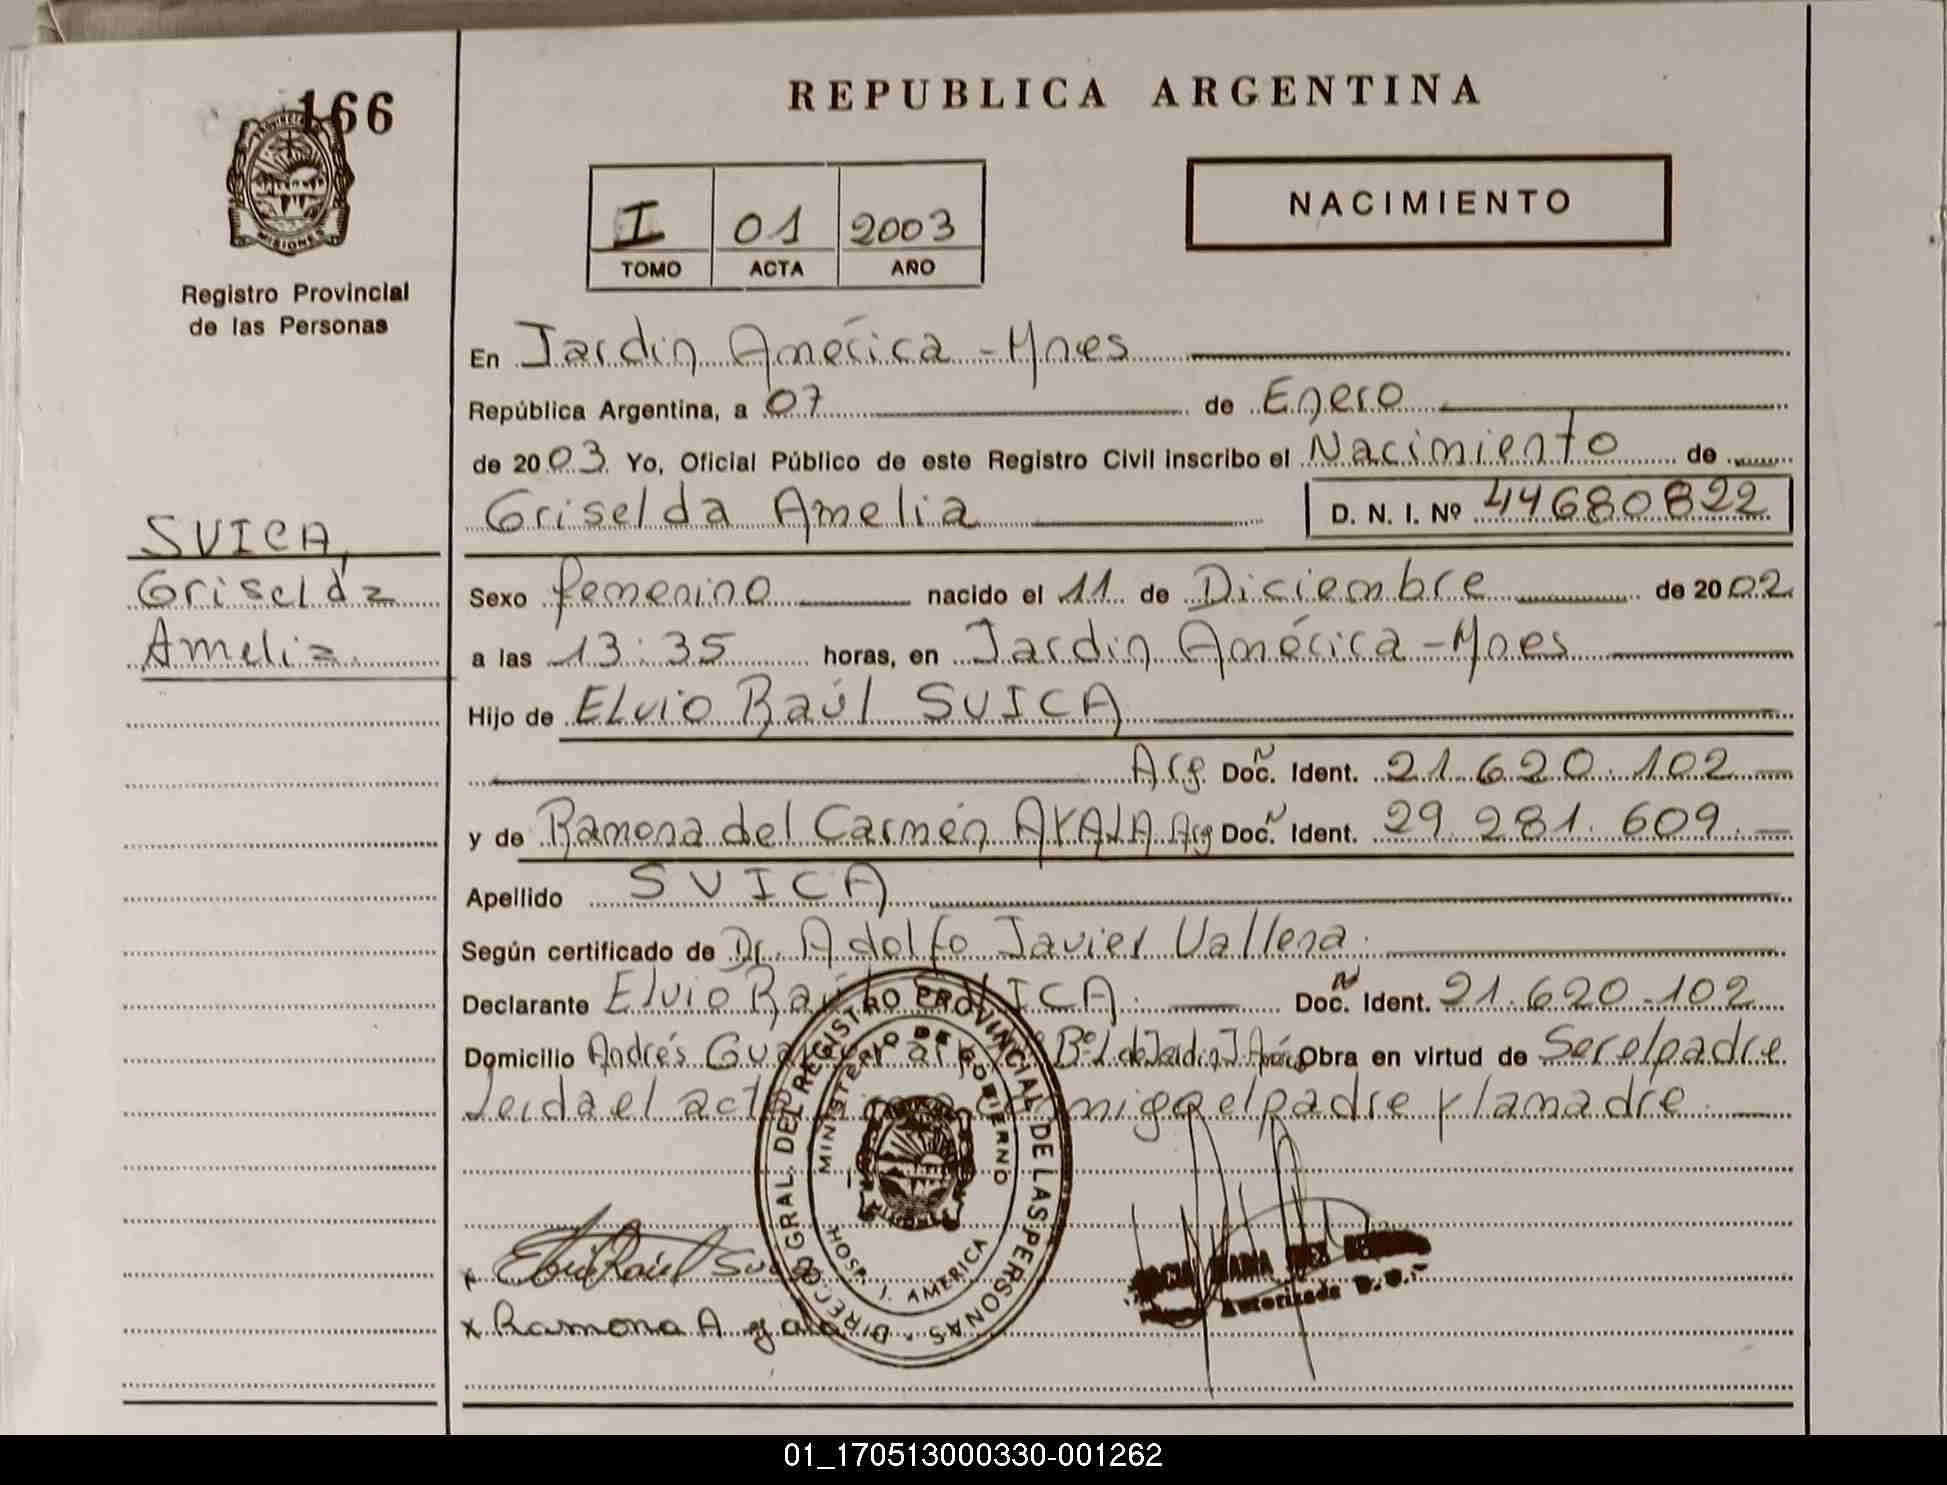 166
PROVINCIA
MISIONES
Registro Provincial
de las Personas
SVICA,
Griselda
Amelia.
REPUBLICA ARGENTINA
I 01 2003
TOMO ACTA AÑO
NACIMIENTO
En Jardín América - Mnes
República Argentina, a 07 de Enero
de 2003 Yo, Oficial Público de este Registro Civil inscribo el Nacimiento de
Griselda Amelia D. N. I. Nº 44680822
Sexo femenino nacido el 11 de Diciembre de 2002
a las 13:35 horas, en Jardín América - Mnes
Hijo de ELvio Raúl SVICA
Arg. Doc. Ident. 21.620.102
y de Ramona del Carmén AYALA Arg Doc. Ident. 29.281.609.
Apellido SVICA
Según certificado de Dr. Adolfo Javier Vallena.
Declarante Elvio Raúl SVICA. Doc. Ident. 21.620.102
Domicilio Andrés Bº Obra en virtud de Ser el padre
Leida el acta conmigo el padre y la madre.
DIRECC. GRAL. DEL REGISTRO PROVINCIAL DE LAS PERSONAS
MINISTERIO DE GOBIERNO
HOSP. J. AMERICA
x Elvio Raúl
x Ramona Ayala
MARIA
Autorizada
01_170513000330-001262